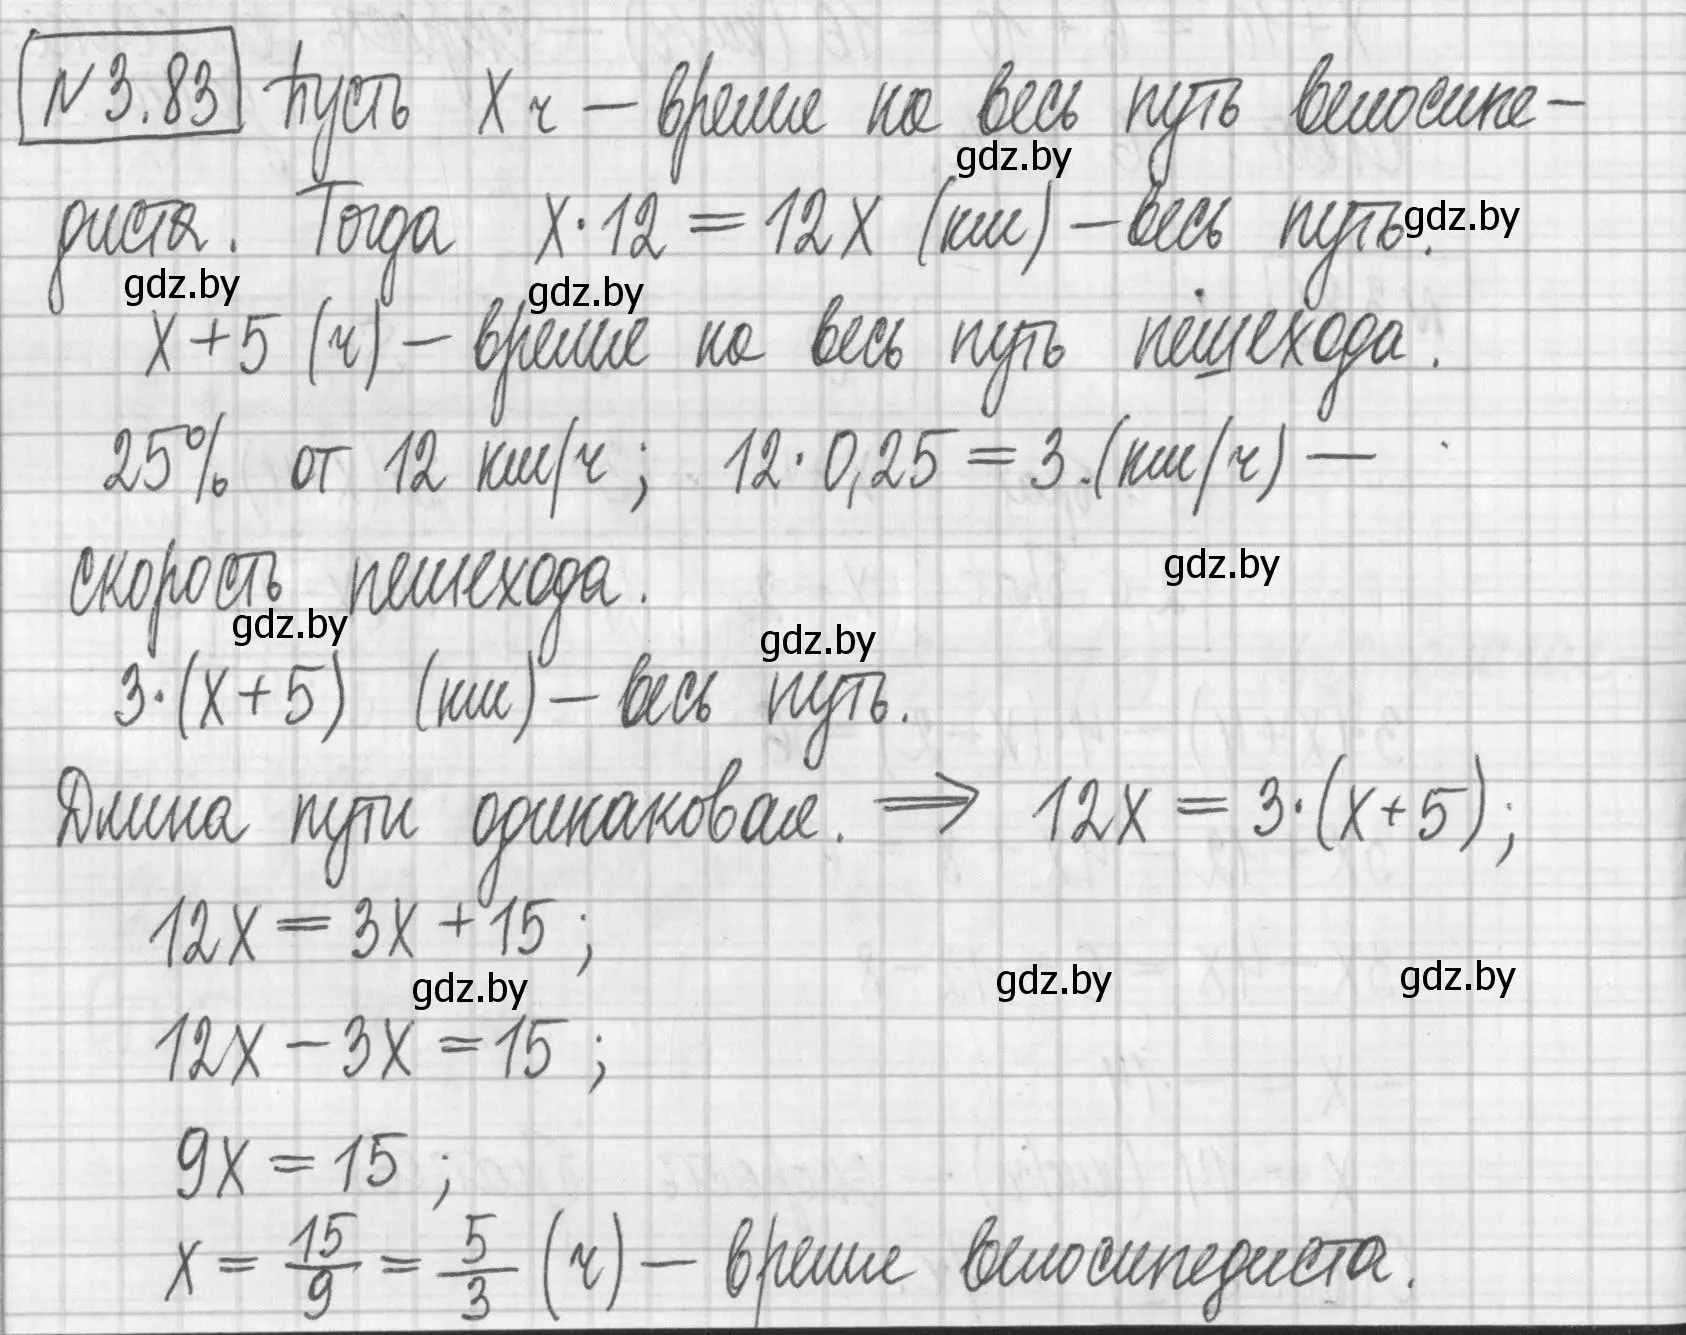 №3.83 Пусть x ч – время на весь путь велосипе-
gdz.by
диста. Тогда x·12=12x (км) – весь путь.
gdz.by
gdz.by gdz.by
x+5 (ч) – время на весь путь пешехода.
25% от 12 км/ч; 12·0,25=3 (км/ч) –
скорость пешехода.
gdz.by
gdz.by gdz.by
3·(x+5) (км) – весь путь.
Длина пути одинаковая. ⇒ 12x=3·(x+5);
12x=3x+15;
gdz.by gdz.by gdz.by
12x–3x=15;
9x=15;
x=15/9=5/3 (ч) – время велосипедиста.